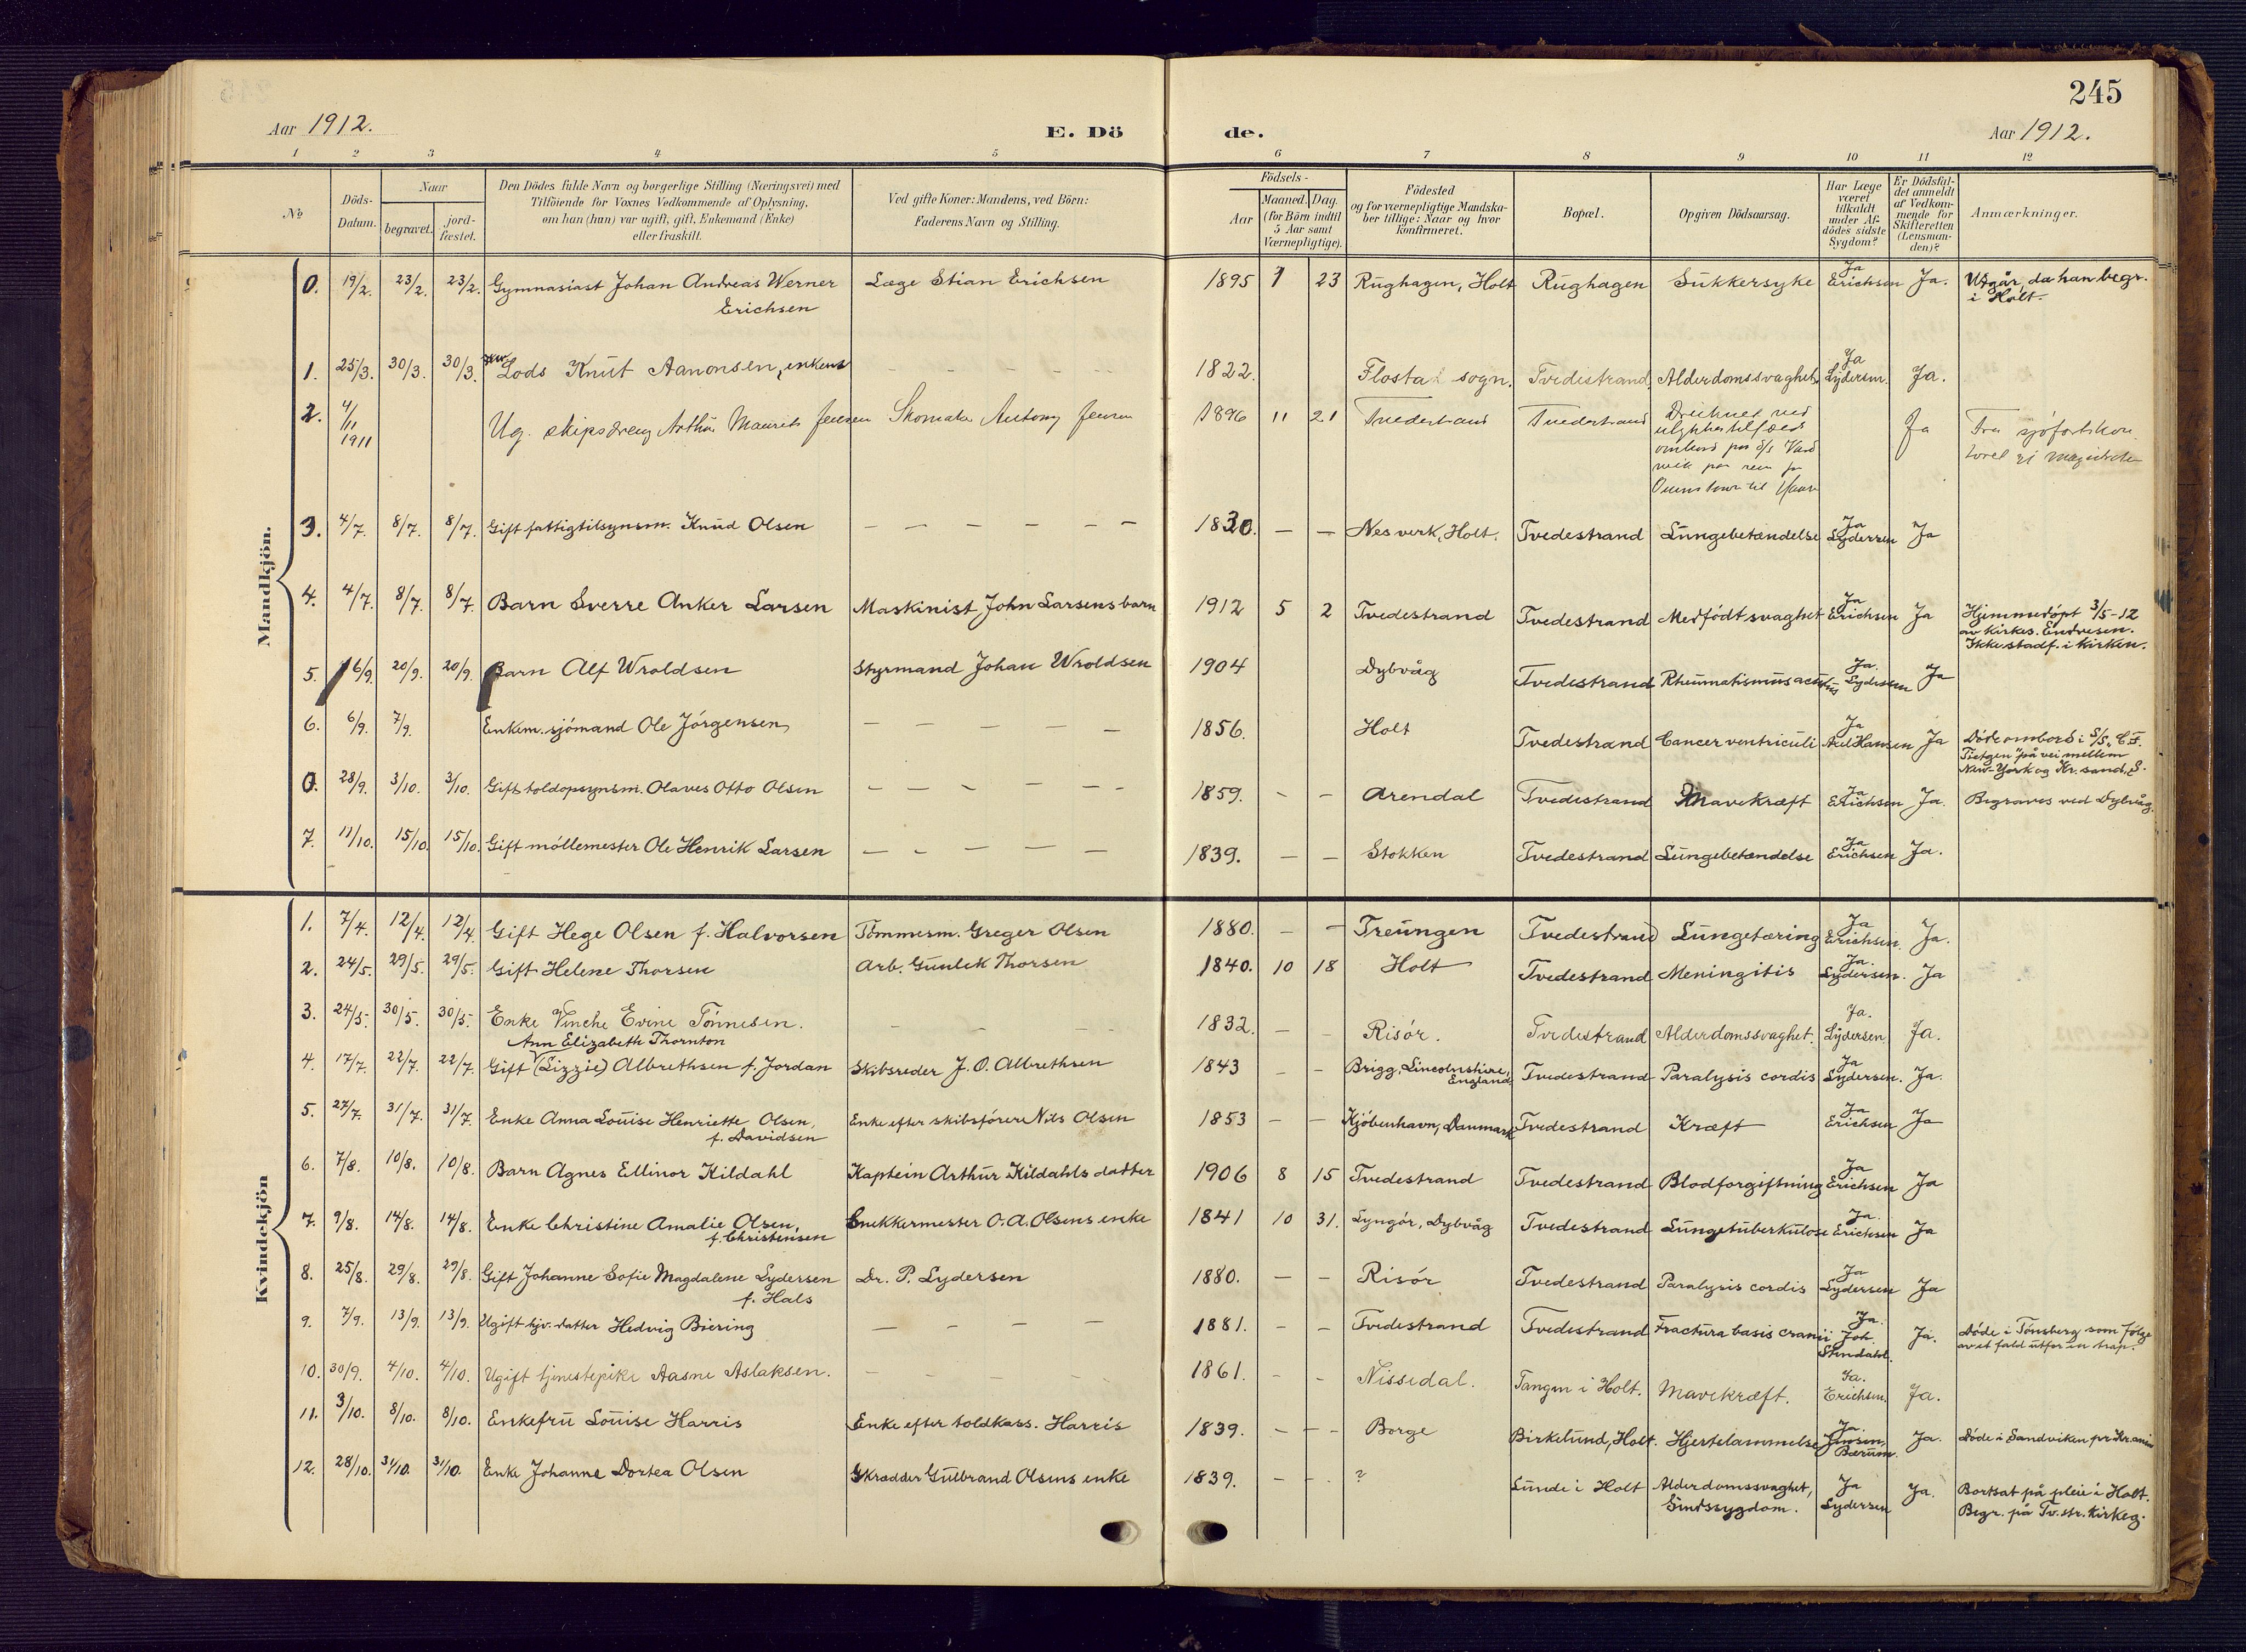 245
Aar 1912.
E. Dö de.
Aar 1912.
1 2 3 4 5 6 7 8 9 10 11 12
№
Döds-
Datum.
Naar
begravet.
jord-
fæstet.
Den Dödes fulde Navn og borgerlige Stilling (Næringsvei) med
Tilföiende for Voxnes Vedkommende af Oplysning,
om han (hun) var ugift, gift, Enkemand (Enke)
eller fraskilt.
Ved gifte Koner: Mandens, ved Börn:
Faderens Navn og Stilling.
Födsels-
Aar
Maaned. Dag.
(for Börn indtil
5 Aar samt
Værnepligtige).
Födested
og for værnepligtige Mandska-
ber tillige: Naar og hvor
konfirmeret.
Bopæl.
Opgiven Dödsaarsag.
Har Læge
været
tilkaldt
under Af-
dödes sidste
Sygdom?
Er Dödsfal-
det anmeldt
af Vedkom-
mende for
Skifteretten
(Lensman-
den)?
Anmærkninger.
Mandkjön.
0. 19/2. 23/2. 23/2. Gymnasiast Johan Andreas Werner Læge Stian Erichsen 1895 1 23 Rughagen, Holt Rughagen Sukkersyke Ja Ja. Utgår, da han begr.
Erichsen Erichsen i Holt.
1. 25/3. 30/3. 30/3. Lods Knut Aanonsen, enkem - - - - 1822. Flosta sogn. Tvedestrand Alderdomssvaghet Ja Lydersen. Ja.
2. 4/11 1911 Ug. skipsdreng Arthur Maurits Jensen Skomaker Antony Jensen 1896 11 21 Tvedestrand Tvedestrand Druknet ved
ulykkestilfælde
ombord paa d/s
Ja Fra sjöfartskon
toret
3. 4/7. 8/7. 8/7. Gift fattigtilsynsm. Knud Olsen — — — — — — 1830. — — Nes verk, Holt. Tvedestrand Lungebetændelse Ja Lydersen Ja
4. 4/7. 8/7. 8/7. Barn Sverre Anker Larsen Maskinist John Larsens barn 1912 5 2 Tvedestrand Tvedestrand Medfödt svaghet Ja Erichsen Ja Hjemmedöpt 3/5-12
av kirkes. Endresen.
Ikke stadf. i kirken.
5. 16/9. 20/9. 20/9. Barn Alf Wroldsen Styrmand Johan Wroldsen 1904 Dybvåg Tvedestrand Rheumatismus acutus Ja. Lydersen Ja
6. 6/9. 7/9. Enkem. sjömand Ole Jörgensen — — — — — 1856. Holt Tvedestrand Cancer ventriculi Ja Axel Hansen Ja Döde ombord i S/S. "C.F.
Tietgen" på vei mellem
New-York og Kr.sand S.
0. 28/9. 3/10. 3/10. Gift toldopsynsm. Olaves Otto Olsen - - - - - - 1859. - - Arendal Tvedestrand Mavekræft Ja Erichsen Ja. Begraves ved Dybvåg.
7. 11/10. 15/10. 15/10. Gift möllemester Ole Henrik Larsen — — — — — 1839. — — Stokken Tvedestrand Lungebetændelse Ja Erichsen Ja.
Kvindekjön
1. 7/4. 12/4. 12/4. Gift Hege Olsen f. Halvorsen Tömmesm. Greger Olsen 1880. — — Treungen Tvedestrand Lungetæring Ja Erichsen. Ja.
2. 24/5. 29/5. 29/5. Gift Helene Thorsen Arb. Gunlek Thorsen 1840. 10 18 Holt Tvedestrand Meningitis Ja. Lydersen. Ja
3. 24/5. 30/5. 30/5. Enke Vinche Evine Tönnesen. - - - - 1832. - - Risör. Tvedestrand Alderdomssvaghet. Ja. Lydersen. Ja.
Ann Elizabeth Thornton
4. 17/7. 22/7. 22/7. Gift (Lizzie) Albrethsen f. Jordan Skibsreder J. O. Albrethsen 1843 - - Brigg, Lincolnshire, England Tvedestrand Paralysis cordis Ja Lydersen. Ja.
5. 27/7. 31/7. 31/7. Enke Anna Louise Henriette Olsen, Enke efter skibsförer Nils Olsen 1853 — — Kjöbenhavn, Danmark Tvedestrand Kræft Ja Erichsen Ja
f. Davidsen
6. 7/8. 10/8. 10/8. Barn Agnes Ellinor Kildahl Kaptein Arthur Kildahls datter 1906 8 15 Tvedestrand Tvedestrand Blodforgiftning Ja Erichsen Ja
7. 9/8. 14/8. 14/8. Enke Christine Amalie Olsen, Snekkermester O. A. Olsens enke 1841 10 31. Lyngör, Dybvåg Tvedestrand Lungetuberkulose Ja. Erichsen Ja
f. Christensen
8. 25/8. 29/8. 29/8. Gift Johanne Sofie Magdalene Lydersen Dr. P. Lydersen 1880. — — Risör Tvedestrand Paralysis cordis Ja Lydersen Ja
f. Hals
9. 7/9. 13/9. 13/9. Ugift hjv. datter Hedvig Biering — — — — 1881. - - Tvedestrand Tvedestrand Fractura basis cranii Ja. Joh. Stendahl. Ja. Döde i Tönsberg som fölge
av et fald utfor en trap.
10. 30/9. 4/10. 4/10. Ugift tjenestepike Aasne Aslaksen. - - - - 1861. - - Nissedal. Tangen i Holt. Mavekræft. Ja. Erichsen. Ja.
11. 3/10. 8/10. 8/10. Enkefru Louise Harris Enke efter toldkass. Harris 1839. - - - Borge Birkelund, Holt. Hjertelammelse Ja. Jensen, Bærum. Ja. Döde i Sandviken pr Kr.ania
12. 28/10. 31/10. 31/10. Enke Johanne Dortea Olsen Skrædder Gulbrand Olsens enke 1839. - - . ? Lunde i Holt Alderdomssvaghet, Ja Ja. Bortsat på pleie i Holt.
Sindssygdom. Lydersen Begr. på Tv.str. kirkeg.